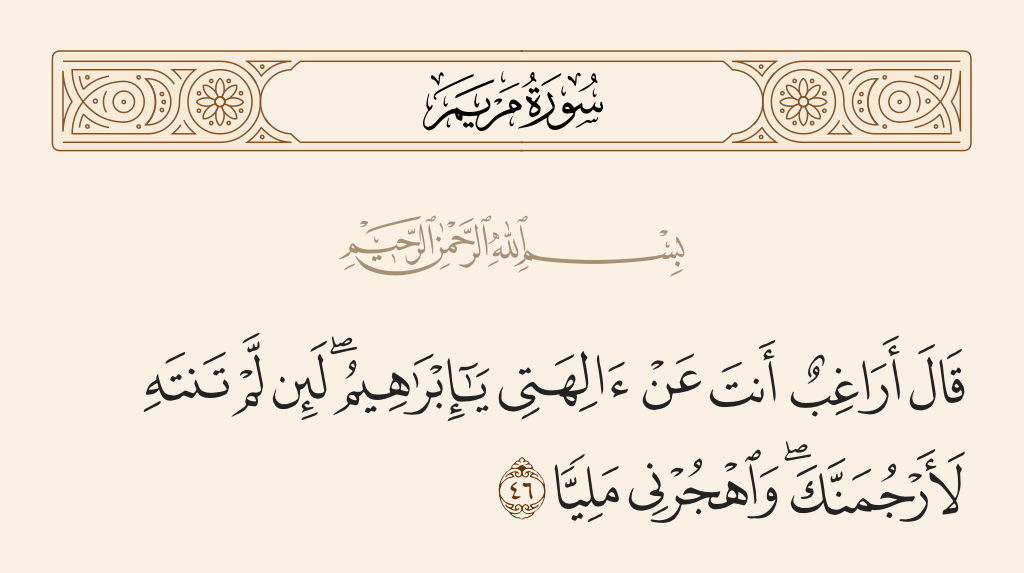 سُورَةُ مَرْيَمَ
بِسْمِ ٱللَّهِ ٱلرَّحْمَٰنِ ٱلرَّحِيمِ
قَالَ أَرَاغِبٌ أَنتَ عَنْ ءَالِهَتِى يَٰٓإِبْرَٰهِيمُ ۖ لَئِن لَّمْ تَنتَهِ
لَأَرْجُمَنَّكَ ۖ وَٱهْجُرْنِى مَلِيًّا ٤٦